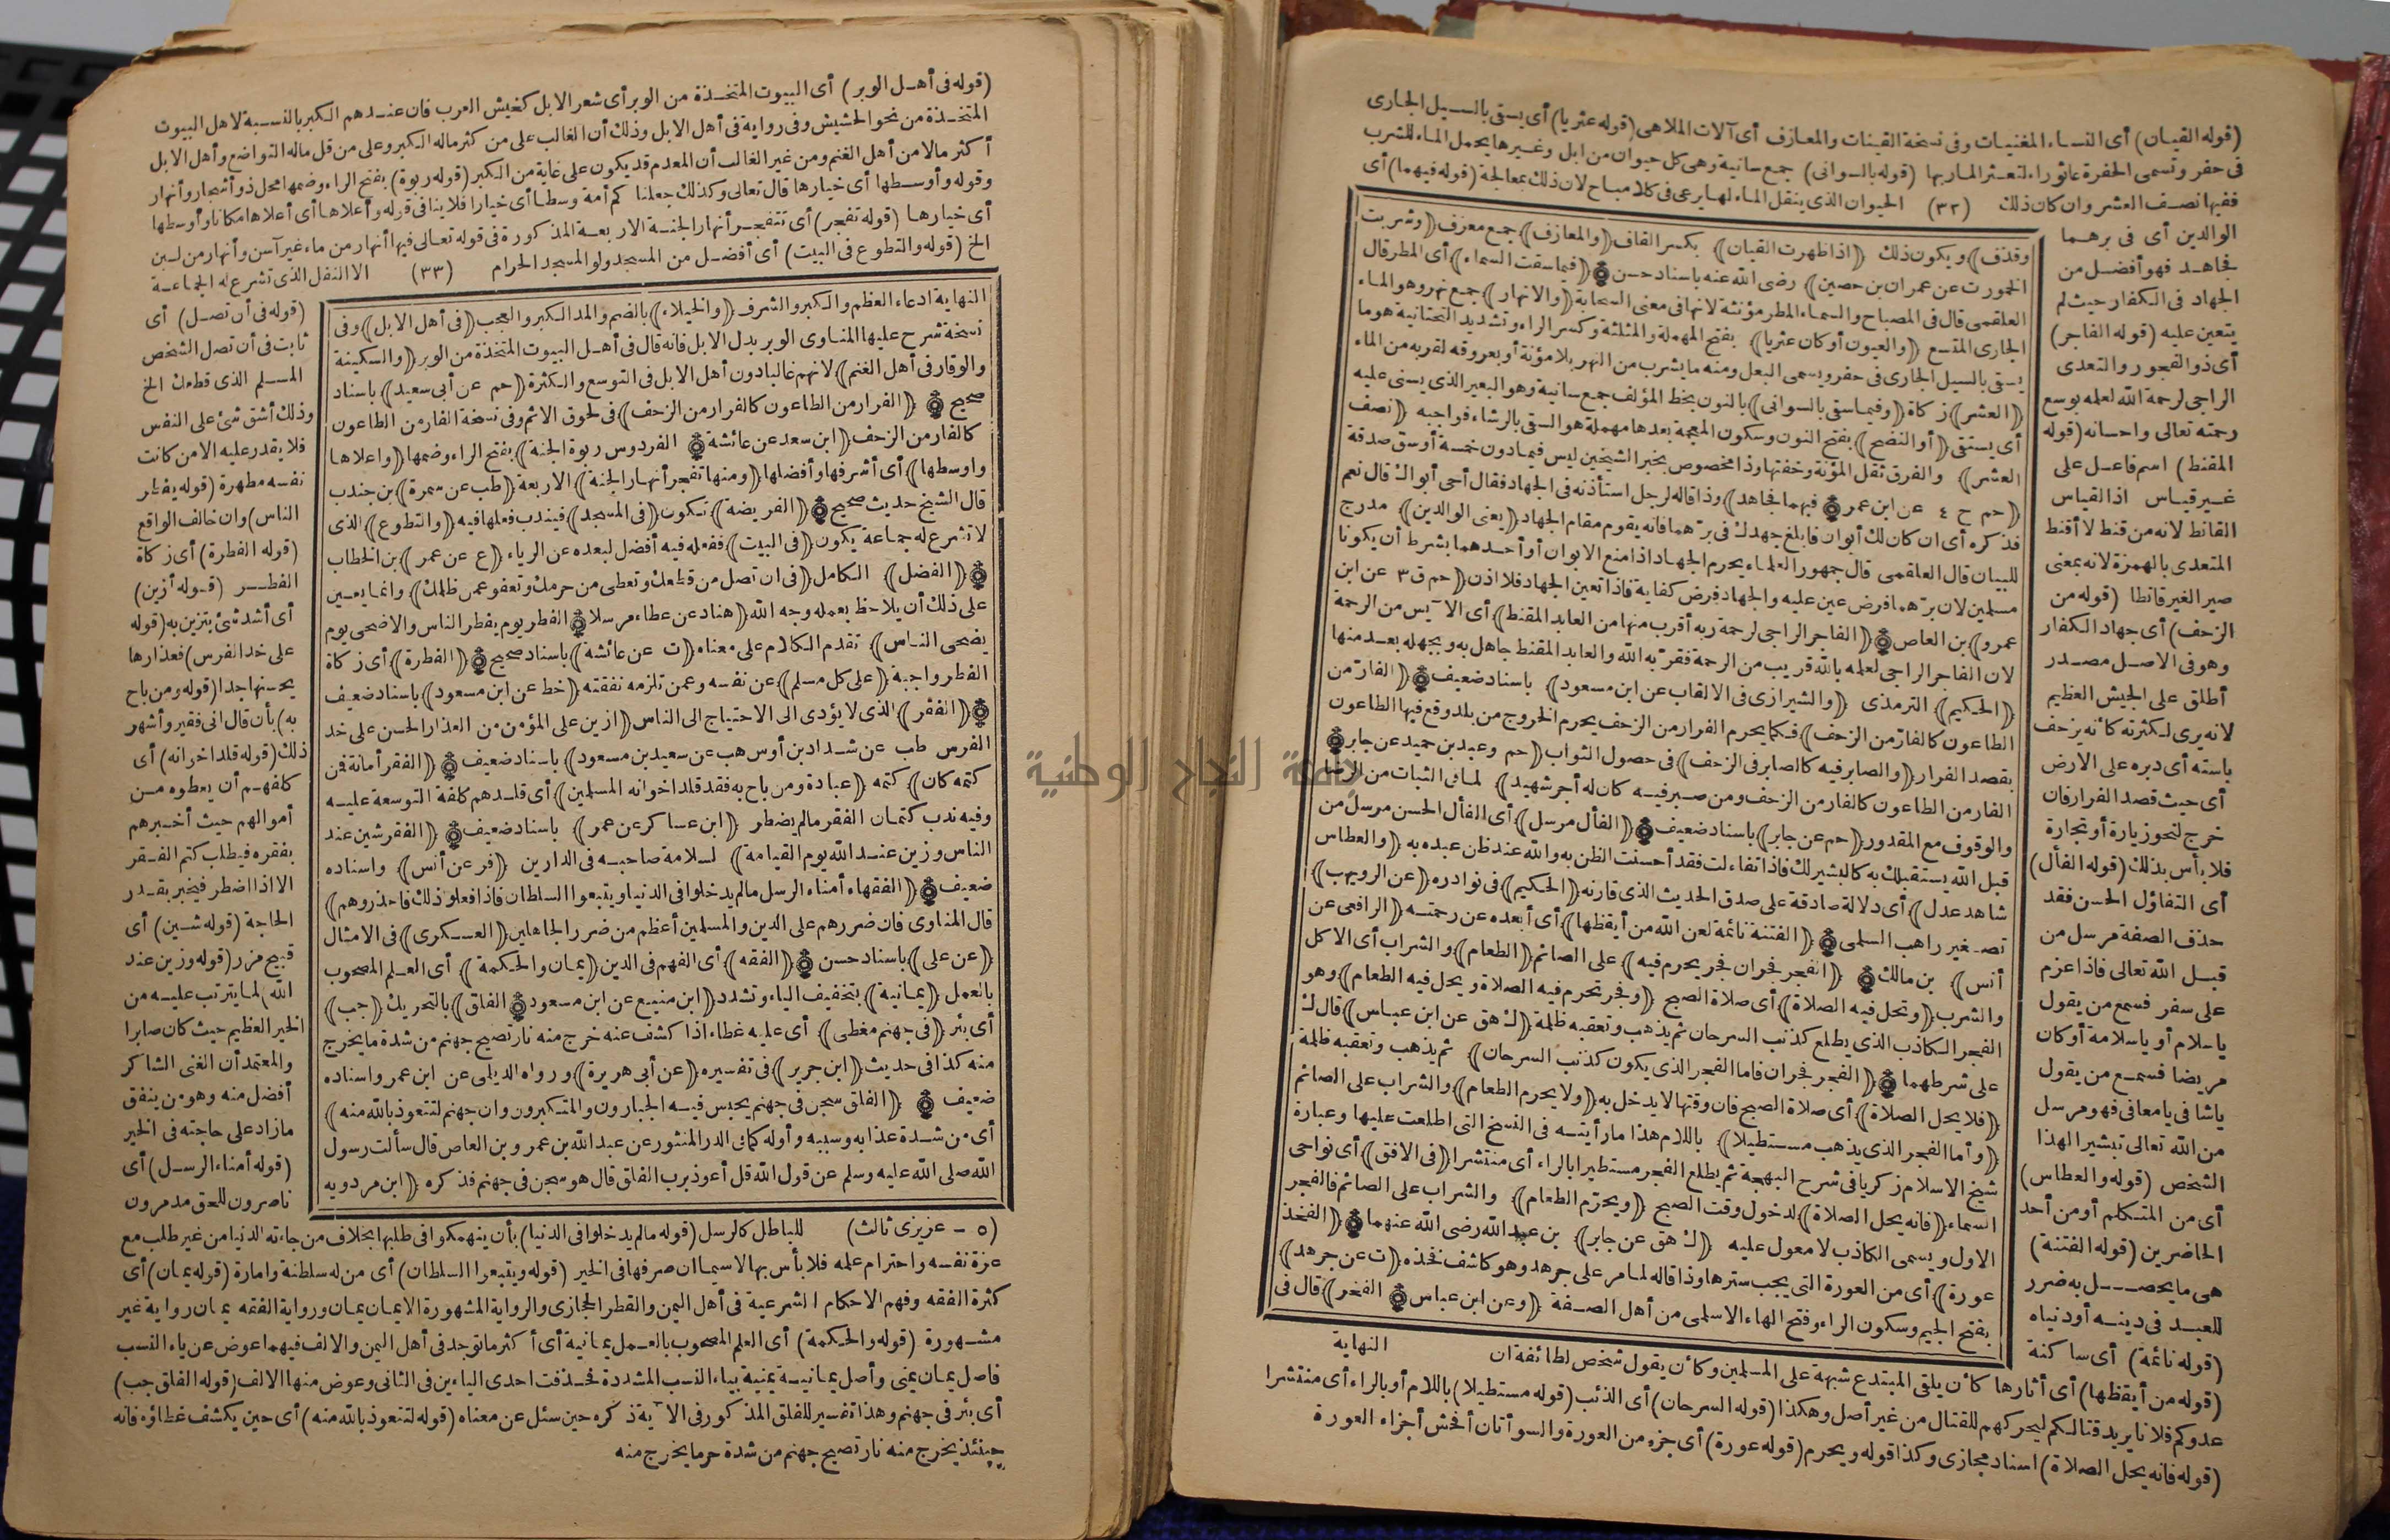 (قوله القيان) أى النساء المغنيات وفى نسخة القينات والمعازف أى آلات الملاهى (قوله عثريا) أى يسقى بالسيل الجارى
فى حفر وتسمى الحفرة عاثوراء لتعثر المار بها (قوله بالسوانى) جمع سانية وهى كل حيوان من ابل وغيرها يحمل الماء للشرب
ففيها نصف العشر وان كان ذلك (٣٢) الحيوان الذى ينقل الماء لها يرعى فى كلا مباح لان ذلك بمعالجة (قوله فيهما) أى
الوالدين أى فى برهما
فجاهد فهو أفضل من
الجهاد فى الكفار حيث لم
يتعين عليه (قوله الفاجر)
أى ذو الفجور والتعدى
الراجى لرحمة الله لعله بوسع
رحمته تعالى واحسانه (قوله
المقنط) اسم فاعل على
غير قياس اذ القياس
القانط لانه من قنط لا أقنط
المتعدى بالهمزة لانه بمعنى
صير الغير قانطا (قوله من
الزحف) أى جهاد الكفار
وهو فى الاصل مصدر
أطلق على الجيش العظيم
لانه يرى لكثرته كأنه يزحف
باسته أى دبره على الارض
أى حيث قصد الفرار فان
خرج لنحو زيارة أو تجارة
فلا بأس بذلك (قوله الفأل)
أى التفاؤل الحسن فقد
حذف الصفة مرسل من
قبل الله تعالى فاذا عزم
على سفر فسمع من يقول
يا سلام أو يا سلامة أو كان
مريضا فسمع من يقول
يا شافى يا معافى فهو مرسل
من الله تعالى تبشيرا لهذا
الشخص (قوله والعطاس)
أى من المتكلم أو من أحد
الحاضرين (قوله الفتنة)
هى ما يحصل به ضرر
للعبد فى دينه أو دنياه
(قوله نائمة) أى ساكنة
وقذف) ويكون ذلك (اذا ظهرت القيان) بكسر القاف (والمعازف) جمع معزف (وشربت
الخمور ت عن عمران بن حصين) رضى الله عنه باسناد حسن (فيما سقت السماء) أى المطر قال
العلقمى قال فى المصباح والسماء المطر مؤنثة لانها فى معنى السحابة (والانهار) جمع نهر وهو الماء
الجارى المتسع (والعيون أو كان عثريا) بفتح المهملة والمثلثة وكسر الراء وتشديد التحتانية هو ما
يسقى بالسيل الجارى فى حفر ويسمى البعل ومنه ما يشرب من النهر بلا مؤنة أو بعروقه لقربه من الماء
(العشر) زكاة (وفيما سقى بالسوانى) بالنون بخط المؤلف جمع سانية وهو البعير الذى يسنى عليه
أى يستقى (أو النضح) بفتح النون وسكون المعجمة بعدها مهملة هو السقى بالرشاء فواجبه (نصف
العشر) والفرق ثقل المؤنة وخفتها وذا مخصوص بخبر الشيخين ليس فيما دون خمسة أوسق صدقة
(حم خ ٤ عن ابن عمر فيهما فجاهد) وذا قاله لرجل استأذنه فى الجهاد فقال أحى أبواك قال نعم
فذكره أى ان كان لك أبوان فابلغ جهدك فى برهما فانه يقوم مقام الجهاد (يعنى الوالدين) مدرج
للبيان قال العلقمى قال جمهور العلماء يحرم الجهاد اذا منع الابوان أو أحدهما بشرط أن يكونا
مسلمين لان برهما فرض عين عليه والجهاد فرض كفاية فاذا تعين الجهاد فلا اذن (حم ق ٣ عن ابن
عمرو) بن العاص (الفاجر الراجى لرحمة ربه أقرب منها من العابد المقنط) أى الآيس من الرحمة
لان الفاجر الراجى لعلمه بالله قريب من الرحمة فقربه الله والعابد المقنط جاهل به وبجهله بعد منها
(الحكيم) الترمذى (والشيرازى فى الالقاب عن ابن مسعود) باسناد ضعيف (الفار من
الطاعون كالفار من الزحف) فكما يحرم الفرار من الزحف يحرم الخروج من بلد وقع فيها الطاعون
بقصد الفرار (والصابر فيه كالصابر فى الزحف) فى حصول الثواب (حم وعبد بن حميد عن جابر
الفار من الطاعون كالفار من الزحف ومن صبر فيه كان له أجر شهيد) لما فى الثبات من الرضا
والوقوف مع المقدور (حم عن جابر) باسناد ضعيف (الفأل مرسل) أى الفأل الحسن مرسل من
قبل الله يستقبلك به كالبشير لك فاذا تفاءلت فقد أحسنت الظن به والله عند ظن عبده به (والعطاس
شاهد عدل) أى دلالة صادقة على صدق الحديث الذى قارنه (الحكيم) فى نوادره (عن الرويهب)
تصغير راهب السلمى (الفتنة نائمة لعن الله من أيقظها) أى أبعده عن رحمته (الرافعى عن
أنس) بن مالك (الفجر فجران فجر يحرم فيه) على الصائم (الطعام) والشراب أى الاكل
والشرب (وتحل فيه الصلاة) أى صلاة الصبح (وفجر تحرم فيه الصلاة ويحل فيه الطعام) وهو
الفجر الكاذب الذى يطلع كذنب السرحان ثم يذهب وتعقبه ظلمة (ك هق عن ابن عباس) قال ك
على شرطهما (الفجر فجران فاما الفجر الذى يكون كذنب السرحان) ثم يذهب وتعقبه ظلمة
(فلا يحل الصلاة) أى صلاة الصبح فان وقتها لا يدخل به (ولا يحرم الطعام) والشراب على الصائم
(وأما الفجر الذى يذهب مستطيلا) باللام هذا ما رأيته فى النسخ التى اطلعت عليها وعبارة
شيخ الاسلام زكريا فى شرح البهجة ثم يطلع الفجر مستطيرا بالراء أى منتشرا (فى الافق) أى نواحى
السماء (فانه يحل الصلاة) لدخول وقت الصبح (ويحرم الطعام) والشراب على الصائم فالفجر
الاول ويسمى الكاذب لا معول عليه (ك هق عن جابر) بن عبد الله رضى الله عنهما (الفخذ
عورة) أى من العورة التى يجب سترها وذا قاله لما مر على جرهد وهو كاشف فخذه (ت عن جرهد)
بفتح الجيم وسكون الراء وفتح الهاء الاسلمى من أهل الصفة (وعن ابن عباس الفخر) قال فى
النهاية
(قوله من أيقظها) أى أثارها كأن يلقى المبتدع شبهة على المسلمين وكأن يقول شخص لطائفة ان
عدوكم فلانا يريد قتالكم ليحركهم للقتال من غير أصل وهكذا (قوله السرحان) أى الذئب (قوله مستطيلا) باللام أو بالراء أى منتشرا
(قوله فانه يحل الصلاة) اسناد مجازى وكذا قوله ويحرم (قوله عورة) أى جزء من العورة والسوأتان أفحش أجزاء العورة
(قوله فى أهل الوبر) أى البيوت المتخذة من الوبر أى شعر الابل كخيش العرب فان عندهم الكبر بالنسبة لاهل البيوت
المتخذة من نحو الحشيش وفى رواية فى أهل الابل وذلك أن الغالب على من كثر ماله الكبر وعلى من قل ماله التواضع وأهل الابل
أكثر مالا من أهل الغنم ومن غير الغالب أن المعدم قد يكون على غاية من الكبر (قوله ربوة) بفتح الراء وضمها محل ذو أشجار وأنهار
وقوله وأوسطها أى خيارها قال تعالى وكذلك جعلناكم أمة وسطا أى خيارا فلا ينافى قوله وأعلاها أى أعلاها مكانا وأوسطها
أى خيارها (قوله تفجر) أى تتفجر أنهار الجنة الاربعة المذكورة فى قوله تعالى فيها أنهار من ماء غير آسن وأنهار من لبن
الخ (قوله والتطوع فى البيت) أى أفضل من المسجد ولو المسجد الحرام (٣٣) الا النفل الذى تشرع له الجماعة
النهاية ادعاء العظم والكبر والشرف (والخيلاء) بالضم والمد الكبر والعجب (فى أهل الابل) وفى
نسخة شرح عليها المناوى الوبر بدل الابل فانه قال فى أهل البيوت المتخذة من الوبر (والسكينة
والوقار فى أهل الغنم) لانهم غالبا دون أهل الابل فى التوسع والكثرة (حم عن أبى سعيد) باسناد
صحيح (الفرار من الطاعون كالفرار من الزحف) فى لحوق الاثم وفى نسخة الفار من الطاعون
كالفار من الزحف (ابن سعد عن عائشة الفردوس ربوة الجنة) بفتح الراء وضمها (واعلاها
واوسطها) أى أشرفها وأفضلها (ومنها تفجر أنهار الجنة) الاربعة (طب عن سمرة) بن جندب
قال الشيخ حديث صحيح (الفريضة) تكون (فى المسجد) فيندب فعلها فيه (والتطوع) الذى
لا تشرع له جماعة يكون (فى البيت) ففعله فيه أفضل لبعده عن الرياء (ع عن عمر) بن الخطاب
(الفضل) الكامل (فى ان تصل من قطعك وتعطى من حرمك وتعفو عمن ظلمك) وانما يعين
على ذلك أن يلاحظ بعمله وجه الله (هناد عن عطاء مرسلا الفطر يوم يفطر الناس والاضحى يوم
يضحى الناس) تقدم الكلام على معناه (ت عن عائشة) باسناد صحيح (الفطرة) أى زكاة
الفطر واجبة (على كل مسلم) عن نفسه وعمن تلزمه نفقته (خط عن ابن مسعود) باسناد ضعيف
(الفقر) الذى لا يؤدى الى الاحتياج الى الناس (ازين على المؤمن من العذار الحسن على خد
الفرس طب عن شداد بن أوس هب عن سعيد بن مسعود) باسناد ضعيف (الفقر أمانة فمن
كتمه كان) كتمه (عبادة ومن باح به فقد قلد اخوانه المسلمين) أى قلدهم كلفة التوسعة عليه
وفيه ندب كتمان الفقر مالم يضطر (ابن عساكر عن عمر) باسناد ضعيف (الفقر شين عند
الناس وزين عند الله يوم القيامة) لسلامة صاحبه فى الدارين (فر عن أنس) واسناده
ضعيف (الفقهاء أمناء الرسل مالم يدخلوا فى الدنيا ويتبعوا السلطان فاذا فعلوا ذلك فاحذروهم)
قال المناوى فان ضررهم على الدين والمسلمين أعظم من ضرر الجاهلين (العسكرى) فى الامثال
(عن على) باسناد حسن (الفقه) أى الفهم فى الدين (يمان والحكمة) أى العلم المصحوب
بالعمل (يمانية) بتخفيف الياء وتشدد (ابن منيع عن ابن مسعود الفلق) بالتحريك (جب)
أى بئر (فى جهنم مغطى) أى عليه غطاء اذا كشف عنه خرج منه نار تصيح جهنم من شدة ما يخرج
منه كذا فى حديث (ابن جرير) فى تفسيره (عن أبى هريرة) ورواه الديلى عن ابن عمر واسناده
ضعيف (الفلق سجن فى جهنم يحبس فيه الجبارون والمتكبرون وان جهنم لتتعوذ بالله منه)
أى من شدة عذابه وسببه وأوله كما فى الدر المنثور عن عبد الله بن عمرو بن العاص قال سألت رسول
الله صلى الله عليه وسلم عن قول الله قل أعوذ برب الفلق قال هو سجن فى جهنم فذكره (ابن مردويه
(قوله فى أن تصل) أى
ثابت فى أن تصل الشخص
المسلم الذى قطعك الخ
وذلك أشق شئ على النفس
فلا يقدر عليه الا من كانت
نفسه مطهرة (قوله يفطر
الناس) وان خالف الواقع
(قوله الفطرة) أى زكاة
الفطر (قوله أزين)
أى أشد شئ يتزين به (قوله
على خد الفرس) فعذارها
يحسنها جدا (قوله ومن باح
به) بأن قال انى فقير وأشهر
ذلك (قوله قلد اخوانه) أى
كلفهم أن يعطوه من
أموالهم حيث أخبرهم
بفقره فيطلب كتم الفقر
الا اذا اضطر فيخبر بقدر
الحاجة (قوله شين) أى
قبيح مزر (قوله وزين عند
الله) لما يترتب عليه من
الخير العظيم حيث كان صابرا
والمعتمد أن الغنى الشاكر
أفضل منه وهو من ينفق
ما زاد على حاجته فى الخير
(قوله أمناء الرسل) أى
ناصرون للحق مدمرون
(٥ - عزيزى ثالث) للباطل كالرسل (قوله مالم يدخلوا فى الدنيا) بأن ينهمكوا فى طلبها بخلاف من جاءته الدنيا من غير طلب مع
عزة نفسه واحترام علمه فلا بأس بها لاسيما ان صرفها فى الخير (قوله ويتبعوا السلطان) أى من له سلطنة وامارة (قوله يمان) أى
كثرة الفقه وفهم الاحكام الشرعية فى أهل اليمن والقطر الحجازى والرواية المشهورة الايمان يمان ورواية الفقه يمان رواية غير
مشهورة (قوله والحكمة) أى العلم المصحوب بالعمل يمانية أى أكثر ما توجد فى أهل اليمن والالف فيهما عوض عن ياء النسب
فاصل يمان يمنى وأصل يمانية يمنية بياء النسب المشددة فحذفت احدى الياءين فى الثانى وعوض منها الالف (قوله الفلق جب)
أى بئر فى جهنم وهذا تفسير للفلق المذكور فى الآية ذكره حين سئل عن معناه (قوله لتتعوذ بالله منه) أى حين يكشف غطاؤه فانه
حينئذ يخرج منه نار تصيح جهنم من شدة حر ما يخرج منه
جامعة النجاح الوطنية